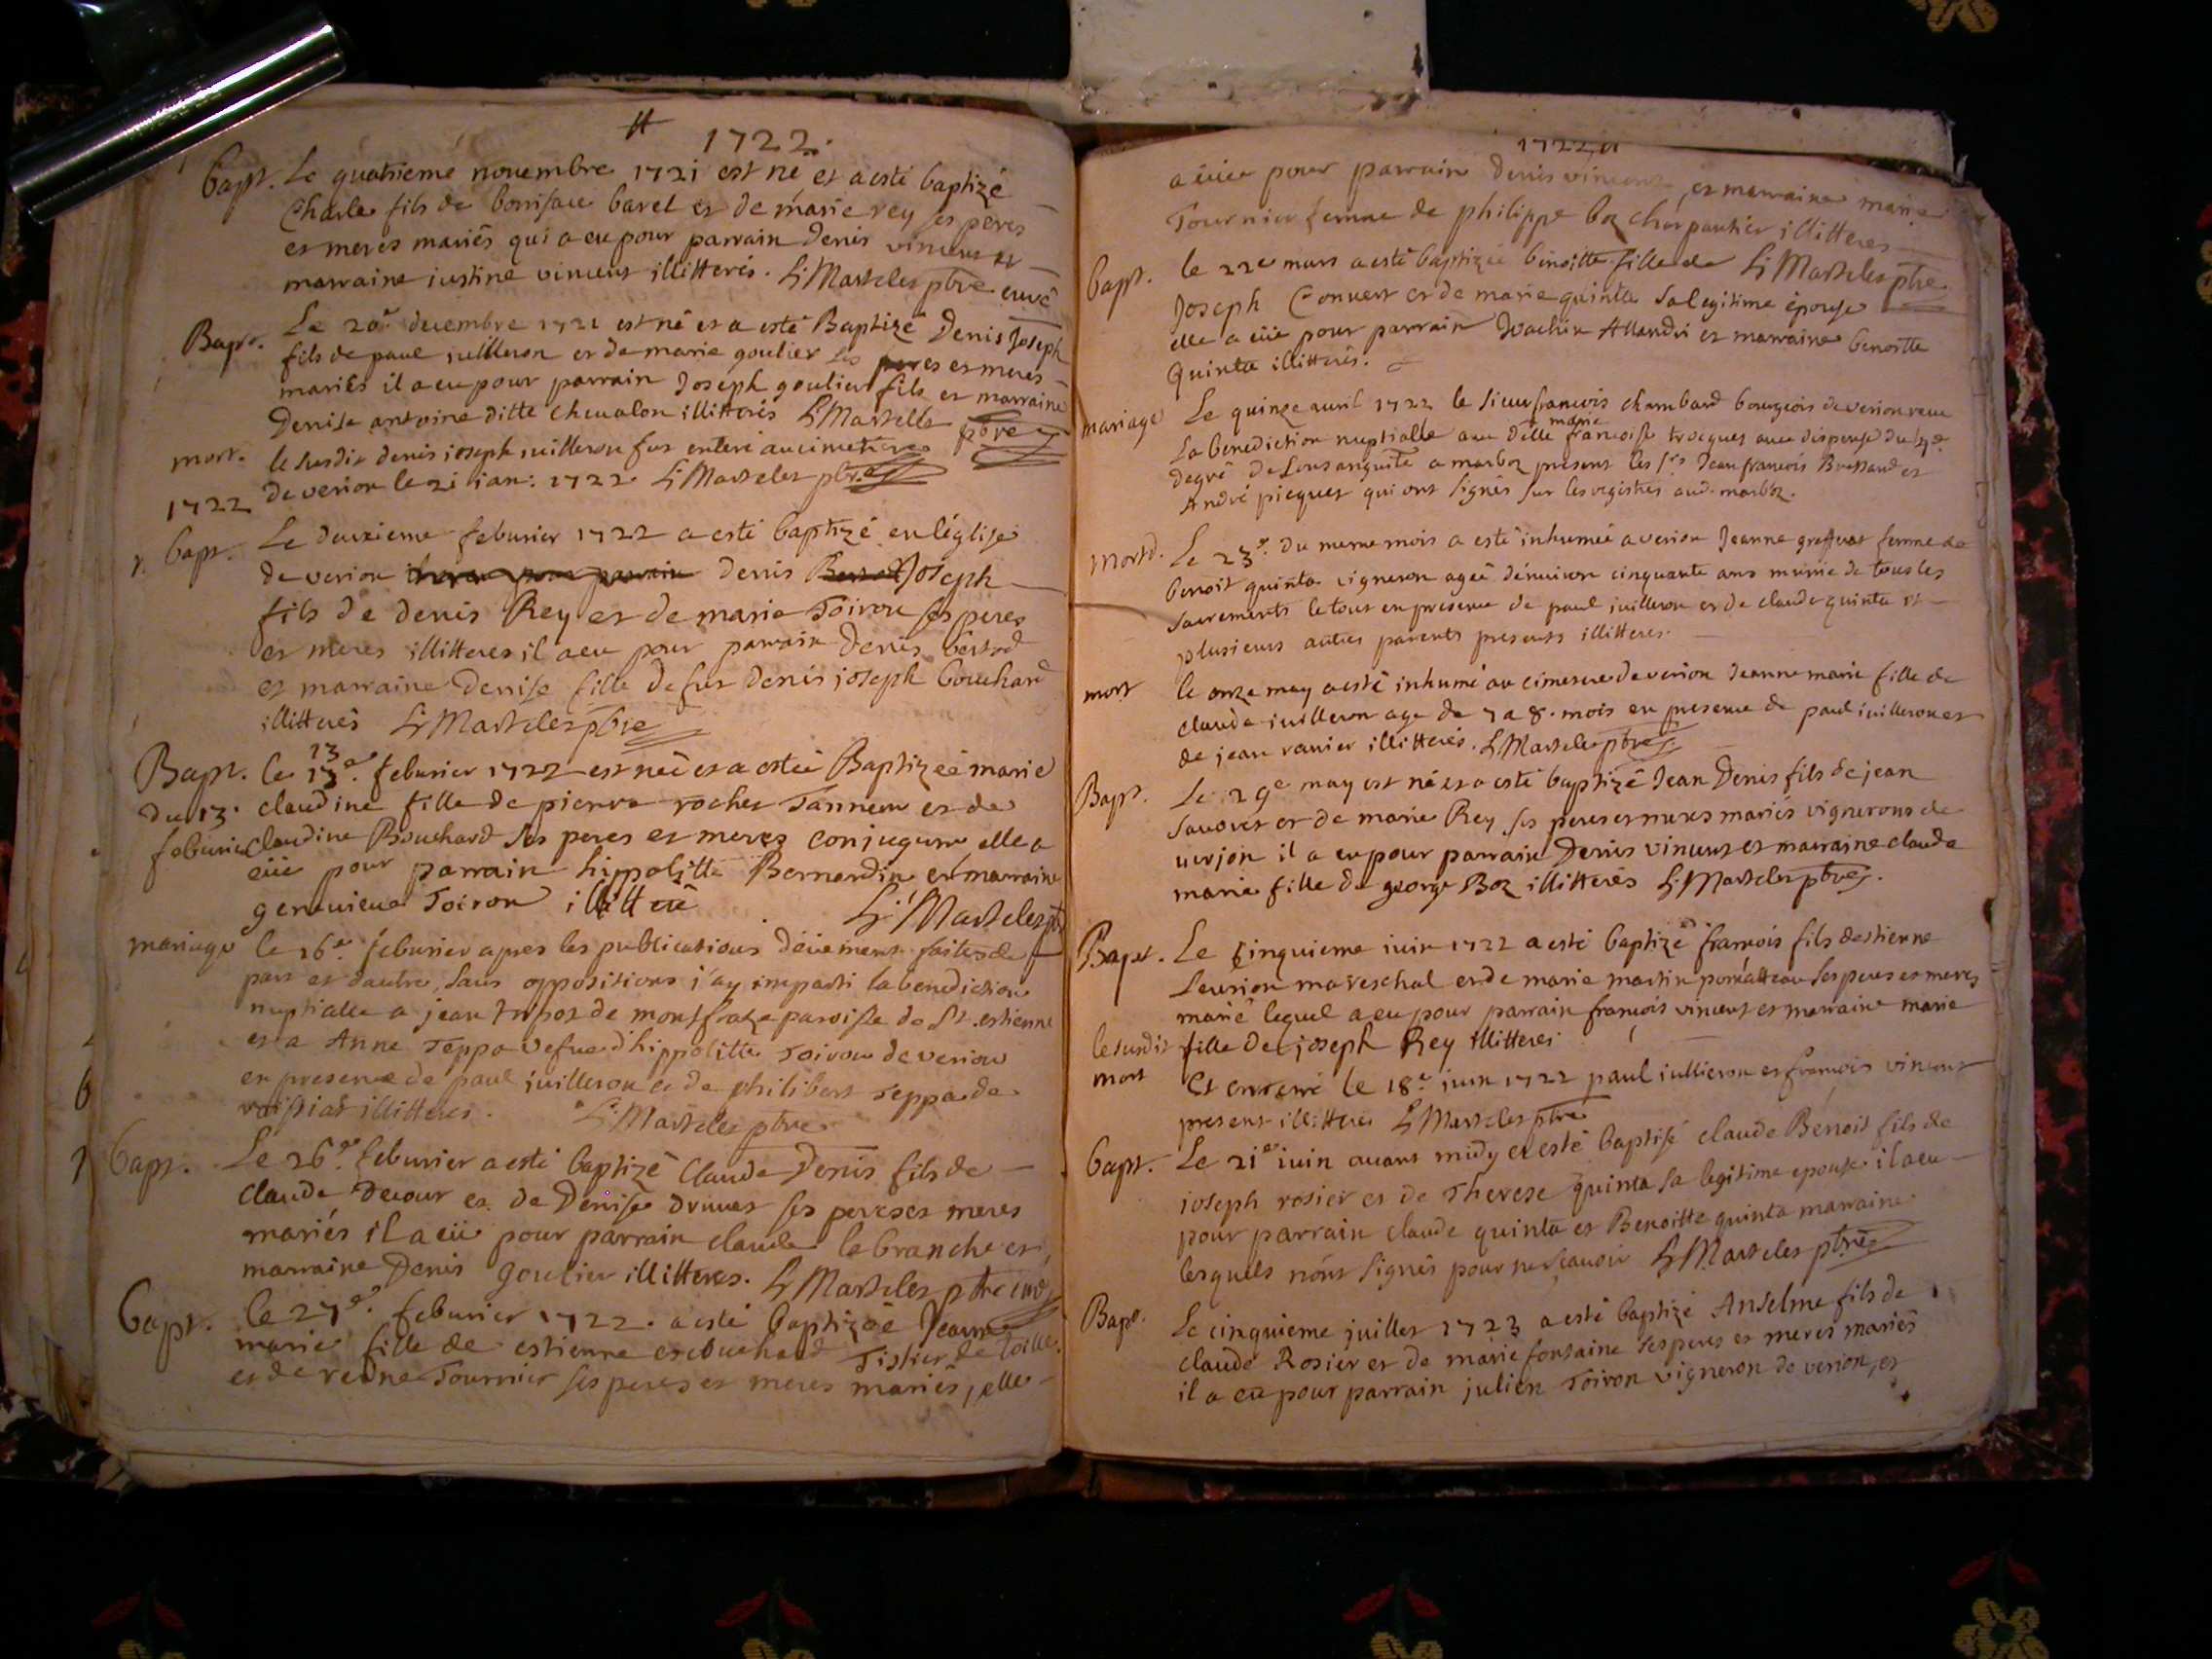 1722.
bapt. Le quatriemé nouembre 1721 est né et a esté baptizé
Charle fils de bonifaue bavel et de marie rey ses peres
et meres mariés qui a eu pour parrain denis vincent et
marraine iustine vincent illitterés. L: Marteles ptre curé
Bapt. Le 20e decembre 1721 est né et a esté Baptizé Denis Joseph
fils de paul juilleron et de marie goulier ses peres et meres
mariés il a eu pour parrain Joseph goulier fils et marraine
Denise antoine ditte cheualon illitterés L Martelles ptre
mort. le susdit denis ioseph iuilleron fut enteré au cimetiere
1722 de verion le 21 ian: 1722 L: Marteles ptre
bapt. Le deuxieme feburier 1722 a esté baptizé en léglise
de verion denis Joseph
fils de denis Rey et de marie Toiron ses peres
et meres illitteres il a eu pour parrain Denis bertod
et marraine Denise fille de fut denis joseph bouchard
illitterés L: Marteles ptre
Bapt. le 13 13e. feburier 1722 est neé et a esteé Baptizeé marie
du 13. claudine fille de pierre rochet Tanneur et de
feburier Claudine Bouchard ses peres et meres conjugum elle a
eüe pour parrain hippolitte Bernardin et marraine
geneuieue Toiron L: Marteles ptre
mariage le 16e feburier apres les publications deüement faites de
part et dautre, sans oppositions i'ay imparti la benediction
nuptialle a jean de paroisse de St. estienne
et a Anne Teppa vefue d'hippolitte Toiron de verion
en presence de paul juilleron et de philibert Teppa de
illitteres. L: Marteles ptre
bapt. Le 26e. feburier a esté baptizé Claude Denis fils de
claude decour et de Denise ses peres et meres
mariés il a eü pour parrain claude labranche et
marraine Denis goulier illitteres. L Marteles ptre curé
bapt. le 27e. feburier 1722. a esté baptizeé Jeanne
marie fille de estienne Tistier de toille
et de reine Tournier ses peres et meres mariés, elle
1722
a eüe pour parrain Denis vincent, et marraine marie
Tournier femme de philippe boz charpantier illitteres
bapt. le 22e mars a esté baptizeé benoitte fille de L: Marteles ptre
Joseph Convert et de marie quinta sa legitime épouse
elle a eüe pour parrain Joachin Allandri et marraine benoitte
Quinta illitterés.
mariage Le quinze auril 1722 le sieur francois chambard bourgeois de verion receu
marie
La benediction nuptialle auec delle francoise trocquet auec dispense du 4e
degré de Consanguité a marboz present les srs Jean francois Brossard et
André picquet qui ont signés sur les registres aud. marboz.
Mort d. Le 23e. du meme mois a esté inhumeé a verion Jeanne grefferat femme de
benoit quinta vigneron ageé d'enuiron cinquante ans munie de tous les
sacrements le tout en presence de paul iuilleron et de claude quinta et
plusieurs autres parents presents illitteres.
mort le onze may a esté inhumé au cimetiere de verion Jeanne marie fille de
claude iuilleron age de 7 a 8. mois en presence de paul iuilleron et
de jean vanier illitterés. L: Marteles ptre
Bapt. Le 29e may est né et a esté baptizé Jean Denis fils de jean
Sauoret et de marie Rey ses peres et meres mariés vignerons de
verjon il a eu pour parrain Denis vincent et marraine claude
marie fille de george Boz illitterés L: Marteles ptre.
Bapt. Le cinquieme iuin 1722 a esté baptizé francois fils destienne
Leurion mareschal et de marie martin ses peres et meres
marié lequel a eu pour parrain francois vincent et marraine marie
le susdit fille de joseph Rey illitteres
mort Et enterré le 18e iuin 1722 paul iullieron et francois vincent
present illitteres L Marteles ptre
bapt. Le 21e iuin auant midy a esté baptisé claude Benoit fils de
ioseph rosier et de Therese quinta sa legitime epouse il a eu
pour parrain claude quinta et Benoitte quinta marraine
lesquels n'ont signés pour ne scauoir L Marteles ptre
Bapt. Le cinquieme juillet 1723 a esté baptizé Anselme fils de
claude Rosier et de marie fontaine ses peres et meres mariés
il a eu pour parrain julien Toiron vigneron de verion, et